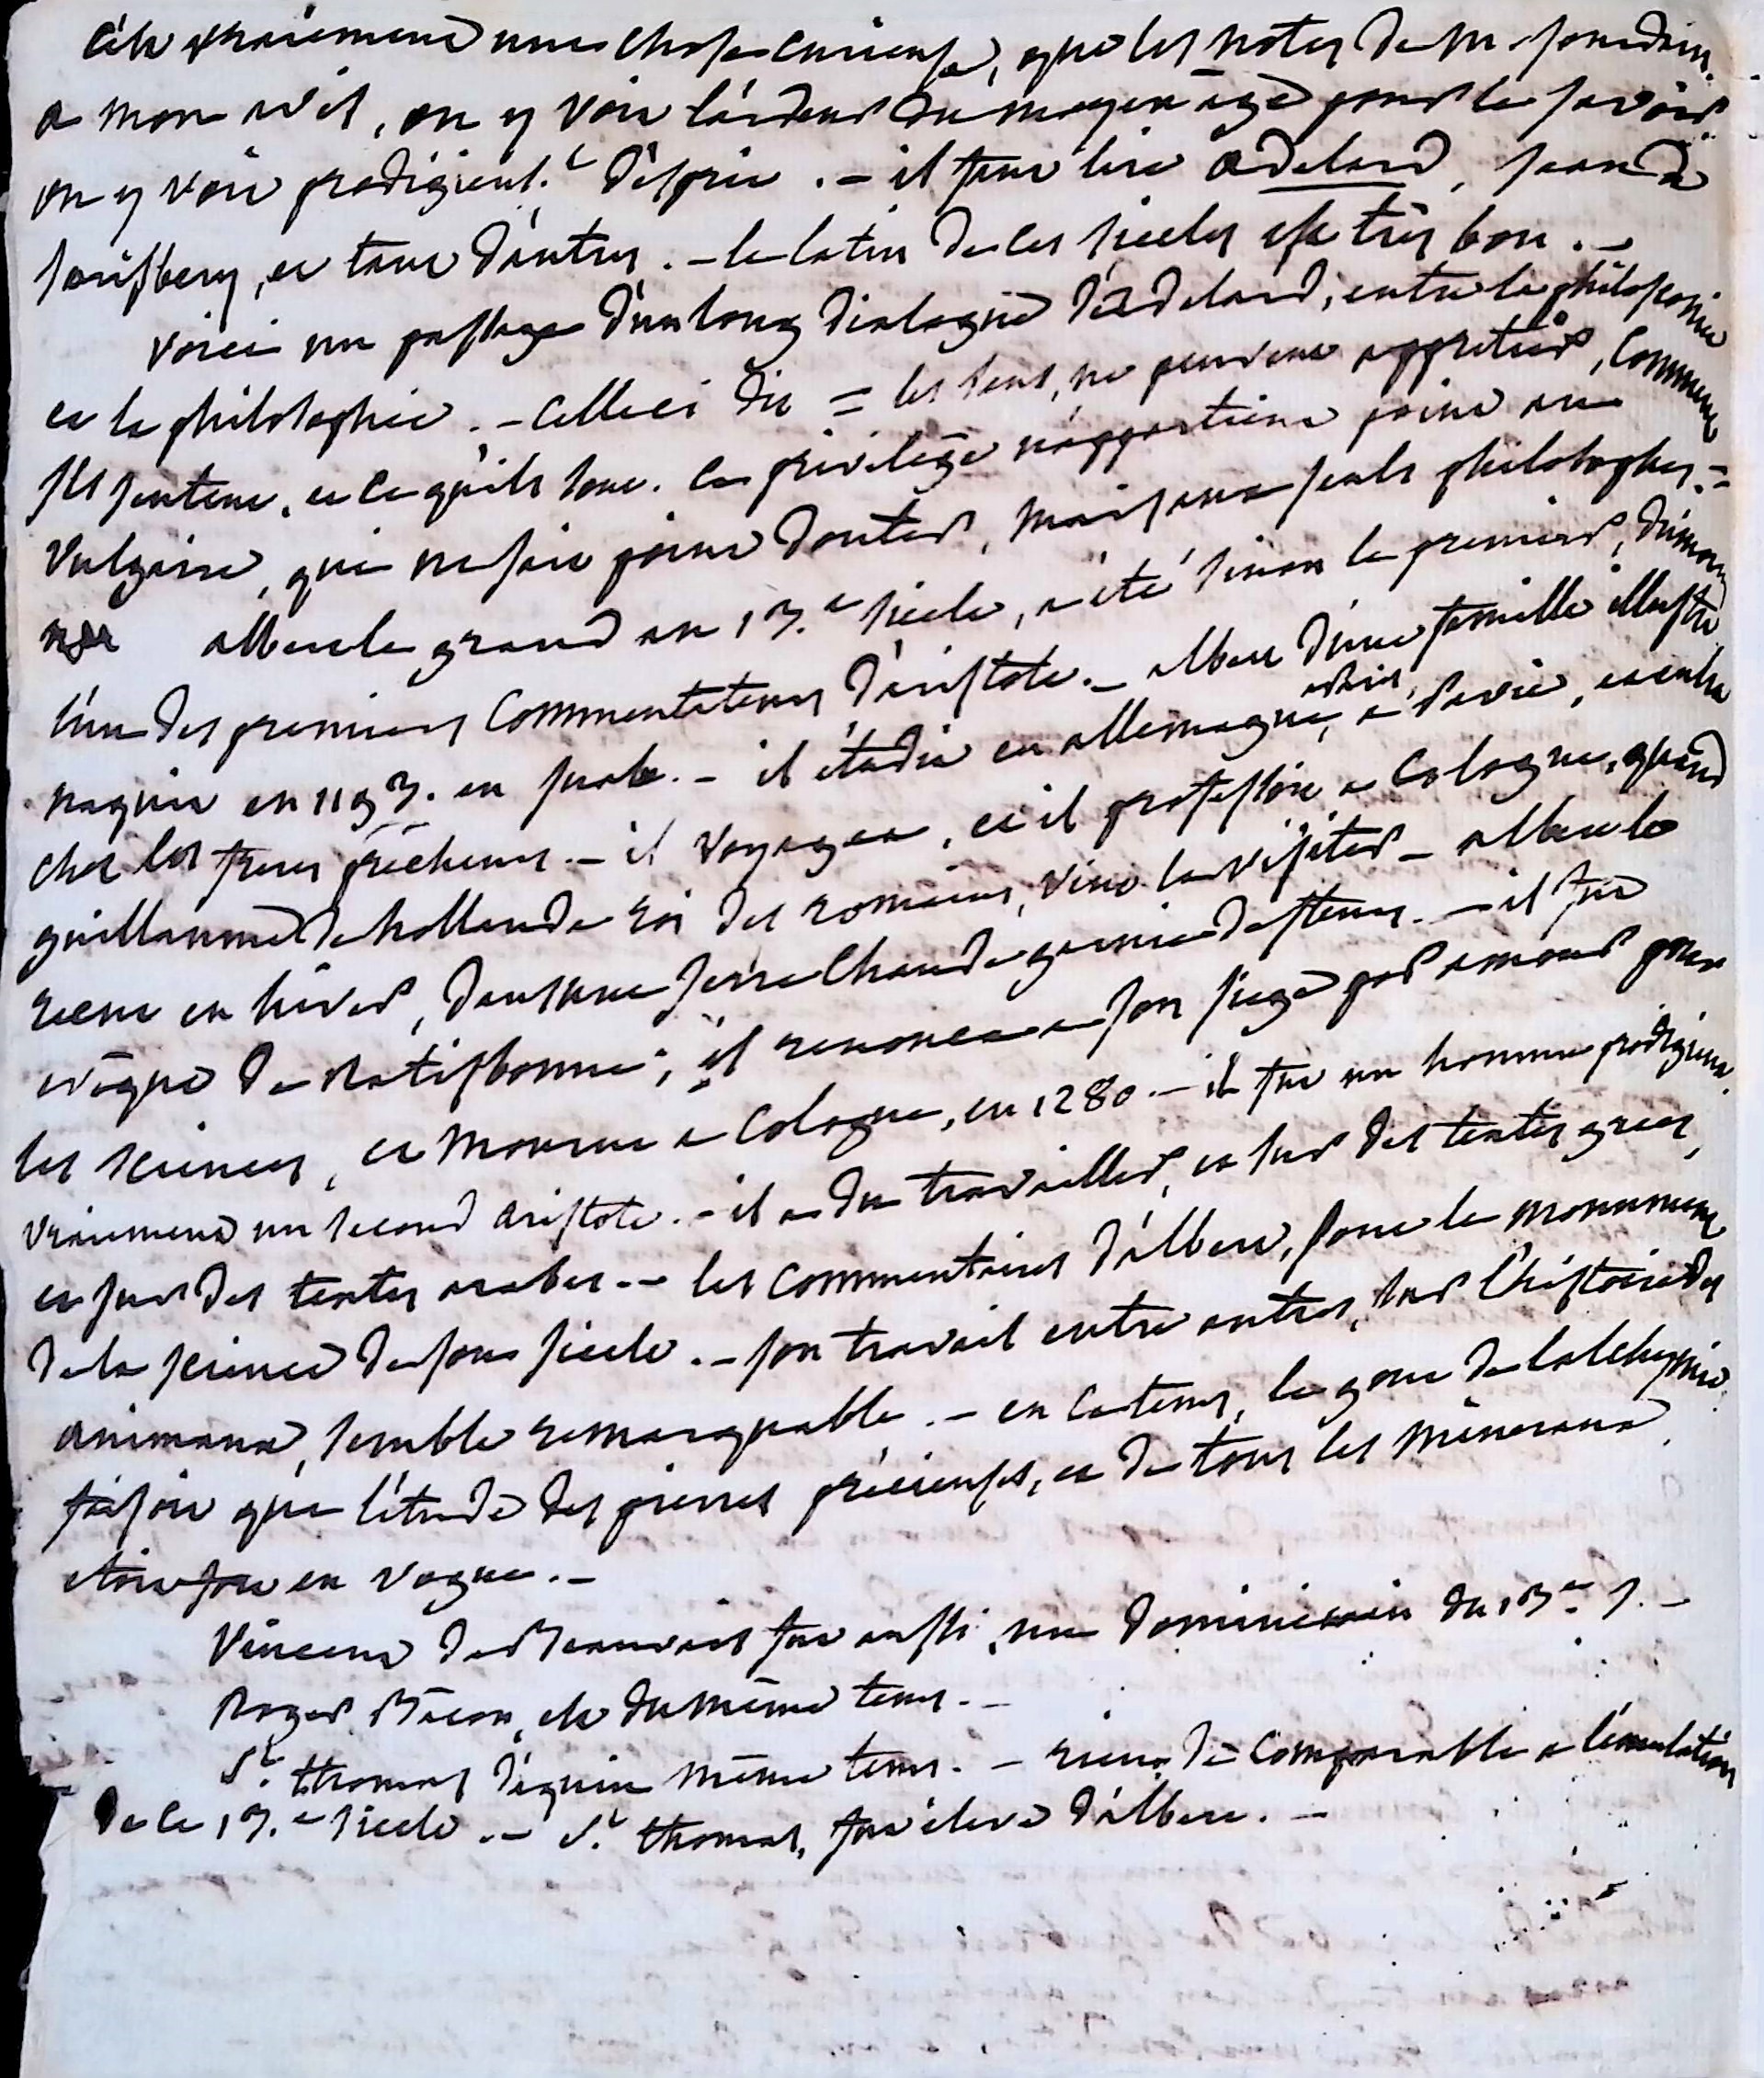 c'est vraiement une chose curieuse, que les notes de Mr jourdain.
a mon avis, on y voit l'ardeur du moyen age pour le savoir
on y voit prodigieus.t d'esprit. – il faut lire adelard, jean de
sarisbery, et tant d'autres. – le latin de ces siecles est très bon. –
voici un passage d'un long dialogue d'adelard, entre la philocosmie
et la philosophie. – celle ci dit = les sens, ne peuvent apprécier, comment
ils sentent, et ce qu'ils sont. ce privilège n'appartient point au
vulgaire, qui ne sait point douter, mais aux seuls philosophes. =
albert le grand au 13.e siecle, a été sinon le premier, du moins
l'un des premiers commentateurs d'aristote. – albert d'une famille illustre
naquit en 1193. en suabe. – il étudia en allemagne, a paris, a pavie, et entra
chez les freres prêcheurs. – il voyagea, et il professoit a Cologne, quand
guillaume de hollande roi des romains, vint le visiter – albert le
recut en hiver, dans une serre chaude garnie de fleurs. – il fut
evêque de Ratisbonne; il renonca a son siege par amour pour
les sciences, et mourut a Cologne, en 1280. – il fut un homme prodigieux.
vraiement un second aristote. – il a du travailler, et sur des textes grecs,
et sur des textes arabes. – les commentaires d'albert, sont le monument
de la science de son siecle. – son travail entre autres, sur l'histoire des
animaux, semble remarquable. – en ce tems, le gout de l'alchymie
faisoit que l'étude des pierres précieuses, et de tous les mineraux
etoit fort en vogue. –
Vincent de Beauvais fut aussi un dominicain du 13.e s. –
Roger Bacon, est du même tems. –
S.t thomas d'aquin même tems. – rien de comparable a l'émulation
de ce 13.e siecle. – S.t thomas, fut élève d'albert. –